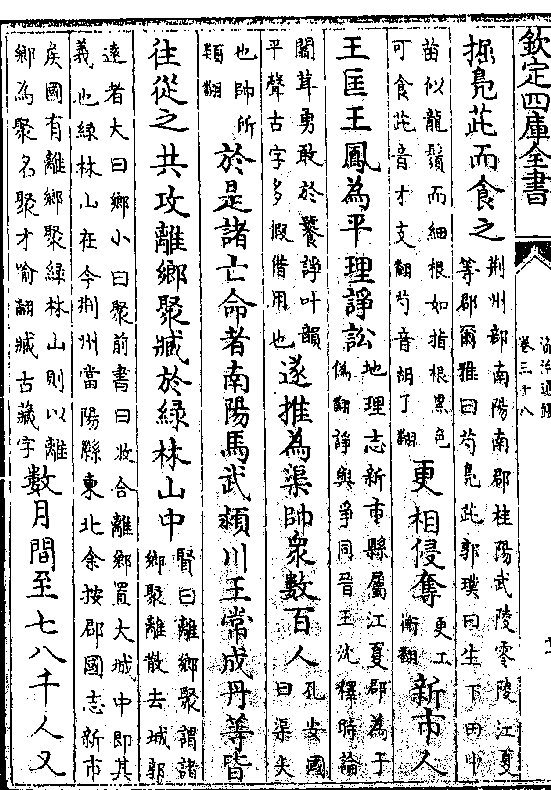 欽定四庫全書
資治通鑑
卷三十八
掘鳧茈而食之
荆州部南陽南郡桂陽武陵零陵江夏
等郡爾雅曰芍鳧茈郭璞曰生下田中
苗似龍鬚而細根如指根黑色
可食茈音才支翻芍音胡了翻
更相侵奪
更工
衡翻
新市人
王匡王鳳為平理諍訟
地理志新市縣屬江夏郡為于
偽翻諍與爭同晉王沈釋時論
闒茸勇敢於饕諍叶韻
平聲古字多假借用也
遂推為渠帥衆數百人
孔安國
曰渠大
也帥所
類翻
於是諸亡命者南陽馬武潁川王常成丹等皆
往從之共攻離鄉聚臧於綠林山中
賢曰離鄉聚謂諸
鄉聚離散去城郭
遠者大曰鄉小曰聚前書曰收合離鄉置大城中即其
義也綠林山在今荆州當陽縣東北余按郡國志新市
侯國有離鄉聚綠林山則以離
鄉為聚名聚才喻翻臧古藏字
數月間至七八千人又